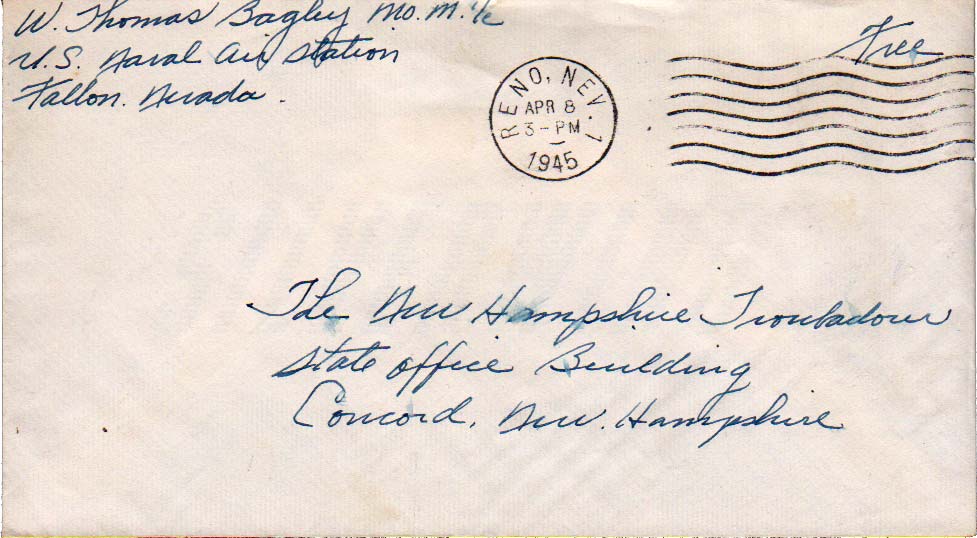 W. Thomas Bagley Mo.M. 1/c
U.S. Naval Air Station
Fallon. Nevada.
Free
RENO, NEV. 1
APR 8
3-PM
1945
The New Hampshire Troubadour
State Office Building
Concord, New. Hampshire